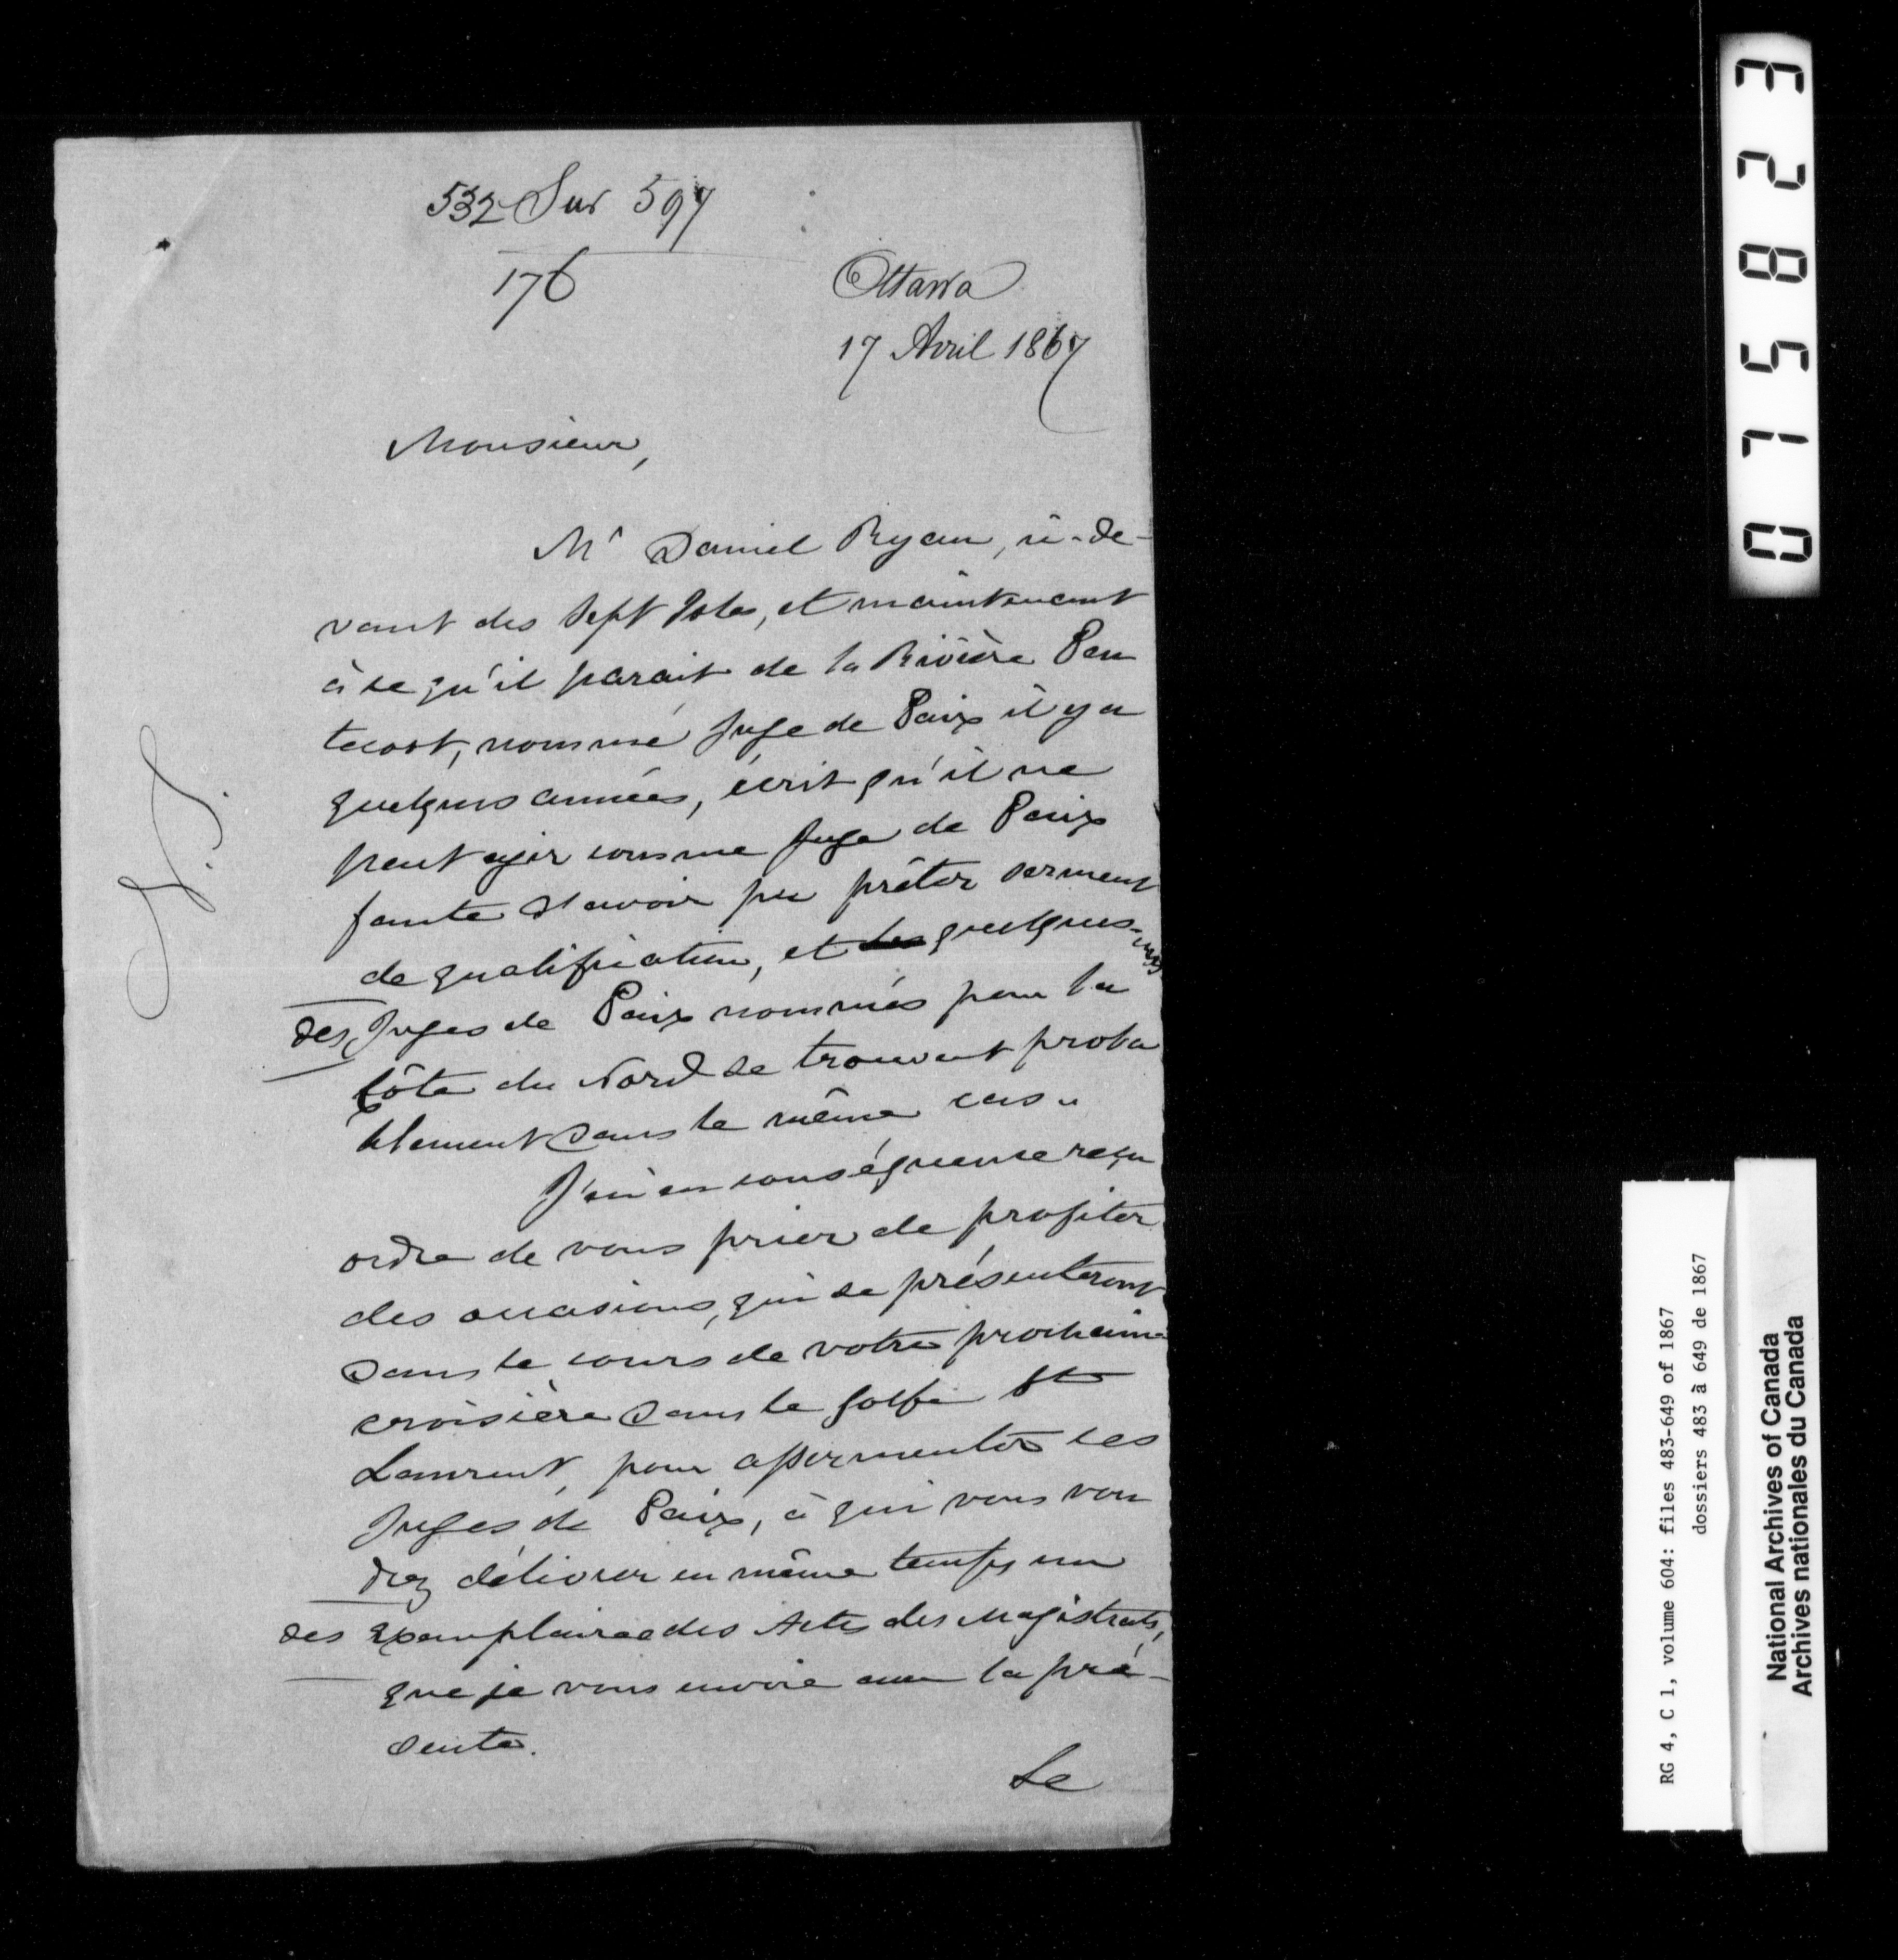 532 Sur 597
176
Ottawa
17 Avril 1867
Monsieur,
Mr Daniel Ryan, ci-de-
vant des Sept Isles, et maintenant
à ce qu'il parait de la Rivière Pen
tecost, nommé Juge de Paix il y a
quelques années, écrit qu'il ne
peut agir comme Juge de Paix
faute d'avoir pu prêter serment
de qualification, et les quelques-uns
des Juges de Paix nommés pour la
Côte du Nord se trouvent proba
blement dans le même cas.
J'ai en conséquence reçu
ordre de vous prier de profiter
des occasions, qui se présenteront
dans le cours de votre prochaine
croisière dans le Golfe St
Laurent, pour assermenter ces
Juges de Paix, à qui vous vou
drez délivrer en même temps un
des exemplaires des Actes des Magistrats,
que je vous envoie avec la pré-
sente.
Le
J.J.
075823
RG 4, C 1, volume 604: files 483-649 of 1867
dossiers 483 à 649 de 1867
National Archives of Canada
Archives nationales du Canada